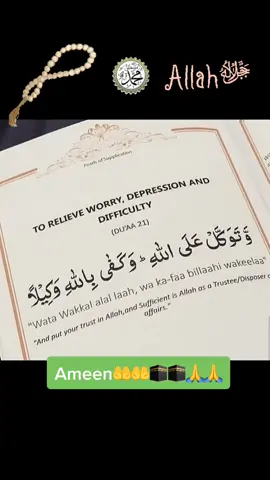 محمد
Allah ﷻ
Pearls of Supplication
TO RELIEVE WORRY, DEPRESSION AND
DIFFICULTY
(DU'AA 21)
وَّتَوَكَّلْ عَلَى اللّٰهِ ؕ وَكَفٰى بِاللّٰهِ وَكِيْلًا
"Wata Wakkal alal laah, wa ka-faa billaahi wakeelaa"
"And put your trust in Allah,and Sufficient is Allah as a Trustee/Disposer of
affairs."
Ameen🤲🤲🕋🕋🙏🙏